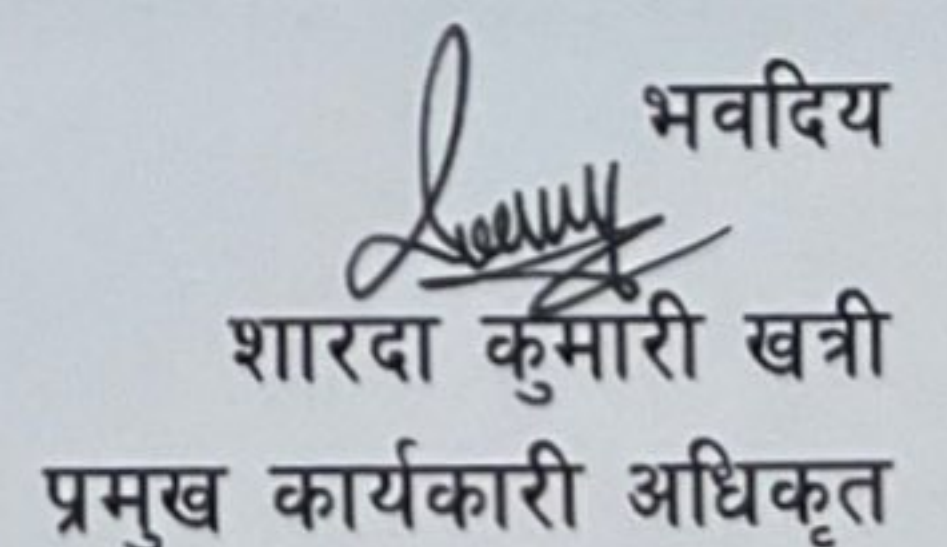 भवदिय
शारदा कुमारी खत्री
प्रमुख कार्यकारी अधिकृत